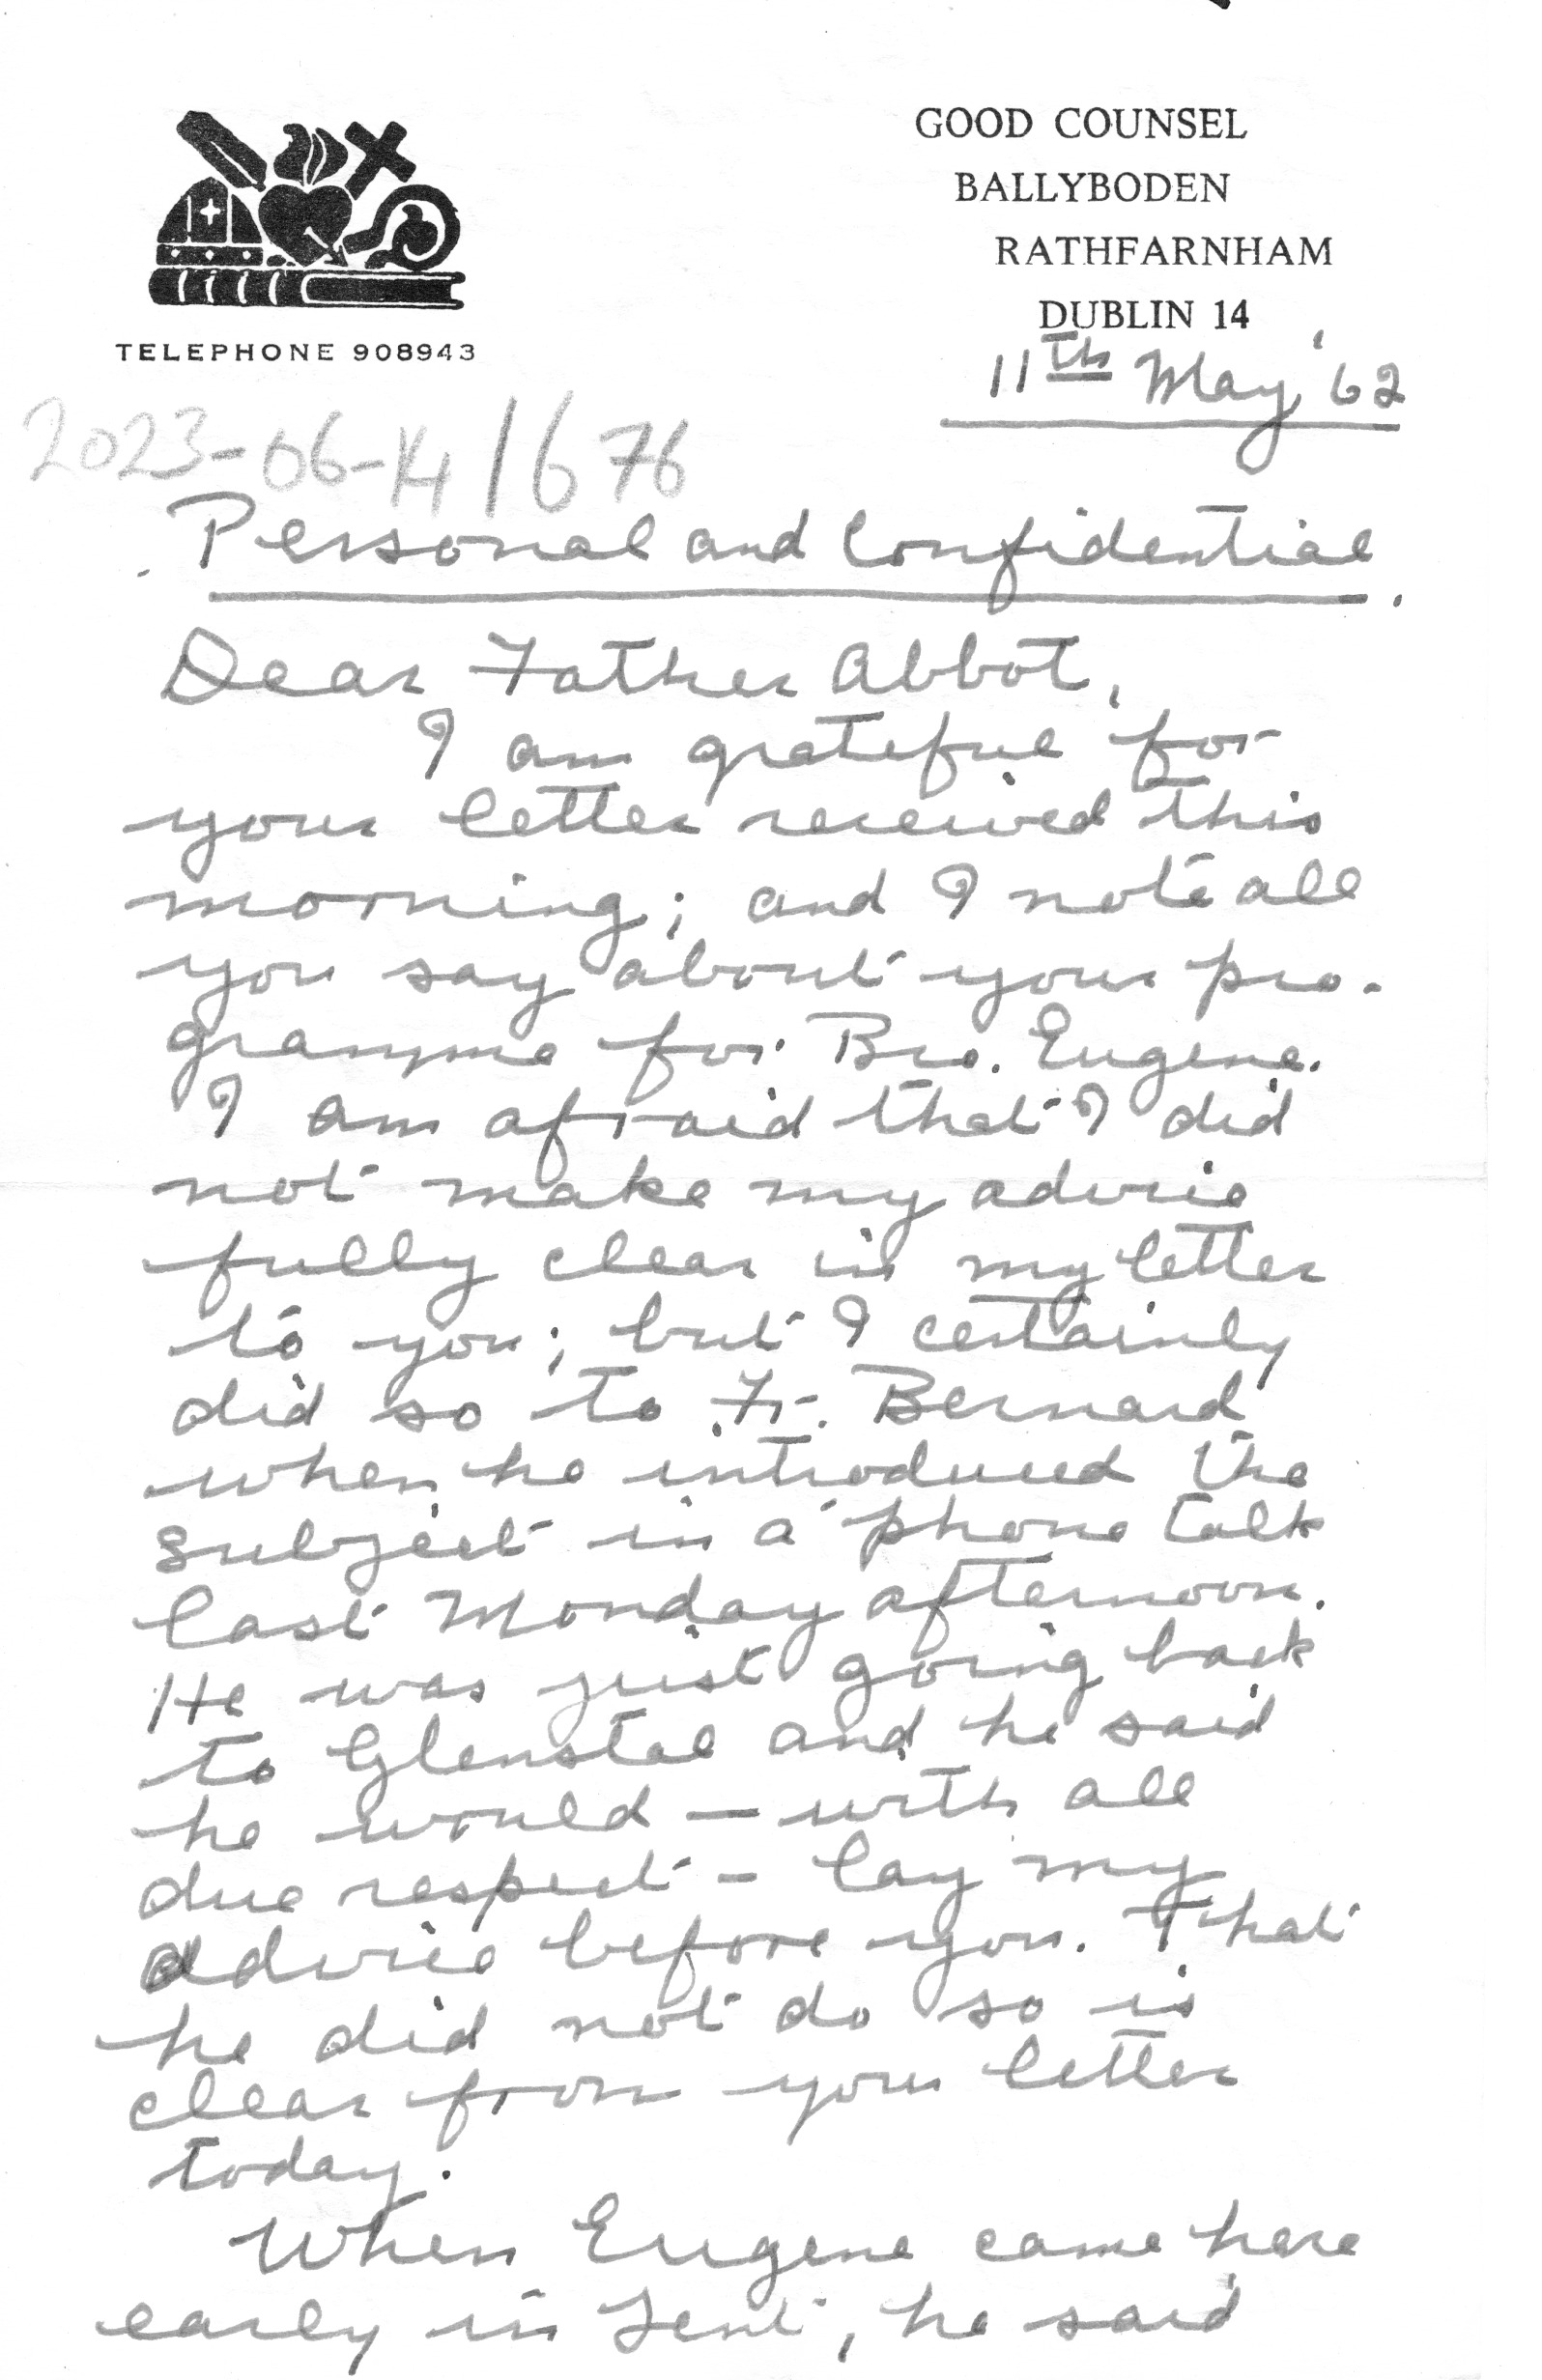 GOOD COUNSEL
BALLYBODEN
RATHFARNHAM
DUBLIN 14
TELEPHONE 908943
11th May '62
2023-06-14/676
Personal and Confidential.
Dear Father Abbot,
I am grateful for
your letter received this
morning; and I note all
you say about your pro-
gramme for Bro. Eugene.
I am afraid that I did
not make my advice
fully clear in my letter
to you; but I certainly
did so to Fr. Bernard
when he introduced the
subject in a 'phone talk
last Monday afternoon.
He was just going back
to Glenstal and he said
he would — with all
due respect — lay my
advice before you. That
he did not do so is
clear from your letter
today.
When Eugene came here
early in Lent, he said